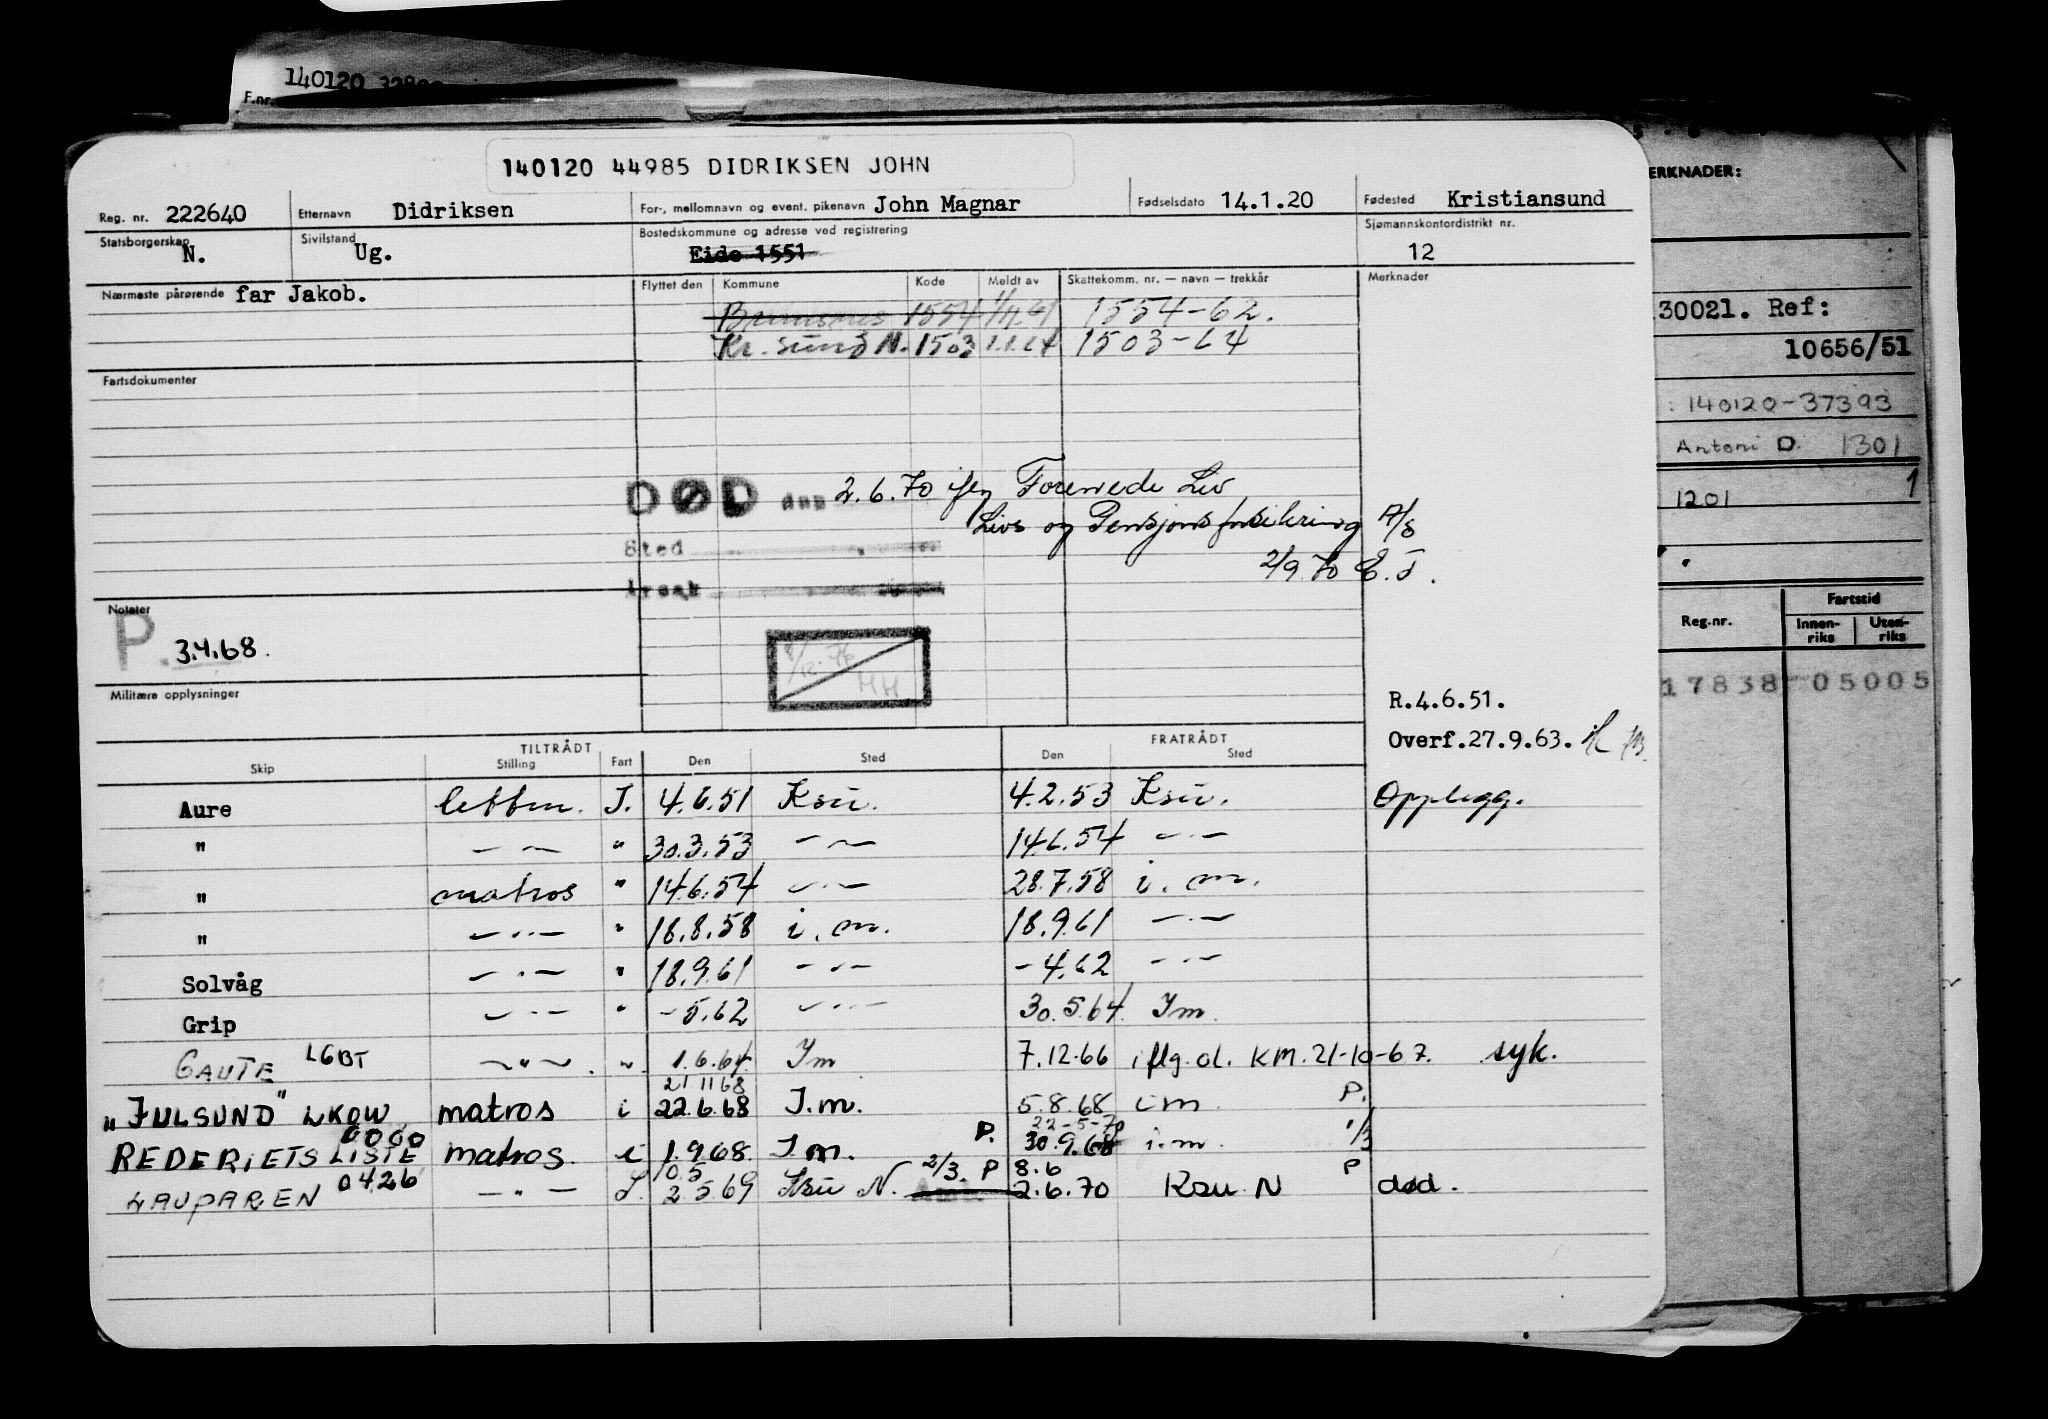 140120
F.nr.
140120 44985 DIDRIKSEN JOHN
Reg. nr. 222640 Etternavn Didriksen For-, mellomnavn og event. pikenavn John Magnar Fødselsdato 14.1.20 Fødested Kristiansund
Statsborgerskap N. Sivilstand Ug. Bostedskommune og adresse ved registrering Eide 1551 Sjømannskontordistrikt nr. 12
Nærmeste pårørende far Jakob. Flyttet den Kommune Kode Meldt av Skattekomm. nr. — navn — trekkår Merknader
1554 1554-62.
Kr. sund N. 1503 1.1.64 1503-64
Fartsdokumenter
DØD den 2.6.70 Forenede Liv
Livs og Pensjonsforsikring A/S
Sted 2/9 70 E.T.
årsak
Notater
P. 3.4.68.
Militære opplysninger
R.4.6.51.
Overf.27.9.63.
TILTRÅDT FRATRÅDT
Skip Stilling Fart Den Sted Den Sted
Aure lettm. I. 4.6.51 Ksu. 4.2.53 Ksu. Opplegg.
" — — " 30.3.53 — — 14.6.54 — " —
" matros " 14.6.54 — " — 28.7.58 i. m.
" — " — " 18.8.58 i. m. 18.9.61 — " —
Solvåg — " — " 18.9.61 — " — - 4.62 — " —
Grip — " — " - 5.62 — " — 30.5.64 Im.
GAUTE LGBT — " — " 1.6.64 Im 7.12.66 iflg. d. KM. 21-10-67. syk.
21 11 68
"JULSUND" LKOW matros i 22.6.68 I.m. 5.8.68 im P.
0000 P. 22-5-70 1/3
REDERIETS LISTE matros. i 1.9.68. I m. 30.9.68 i.m.
10 5 2/3. P 8.6 P
LAUPAREN 0426 — " — I. 2.5.69 Ksu N. 2.6.70 Ksu N død.
ERKNADER:
30021. Ref:
10656/51
: 140120-37393
Antoni D. 1301
1201 1
Reg.nr. Fartstid
Innen-riks Uten-riks
17838 05005